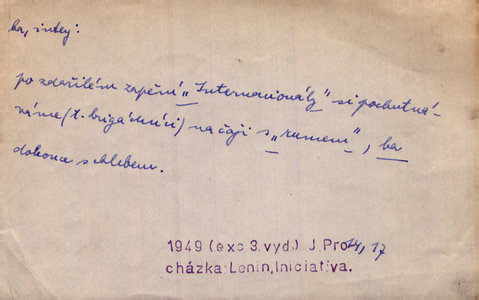 ba, intey:
po zdařilém zapění „Internacionály" si pochutná-
váme (t. brigádníci) na čaji s „rumem", ba
dokonce s chlebem.
1949 (exc 3.vyd.) J.Pro 14, 17
cházka:Lenin,Iniciativa.